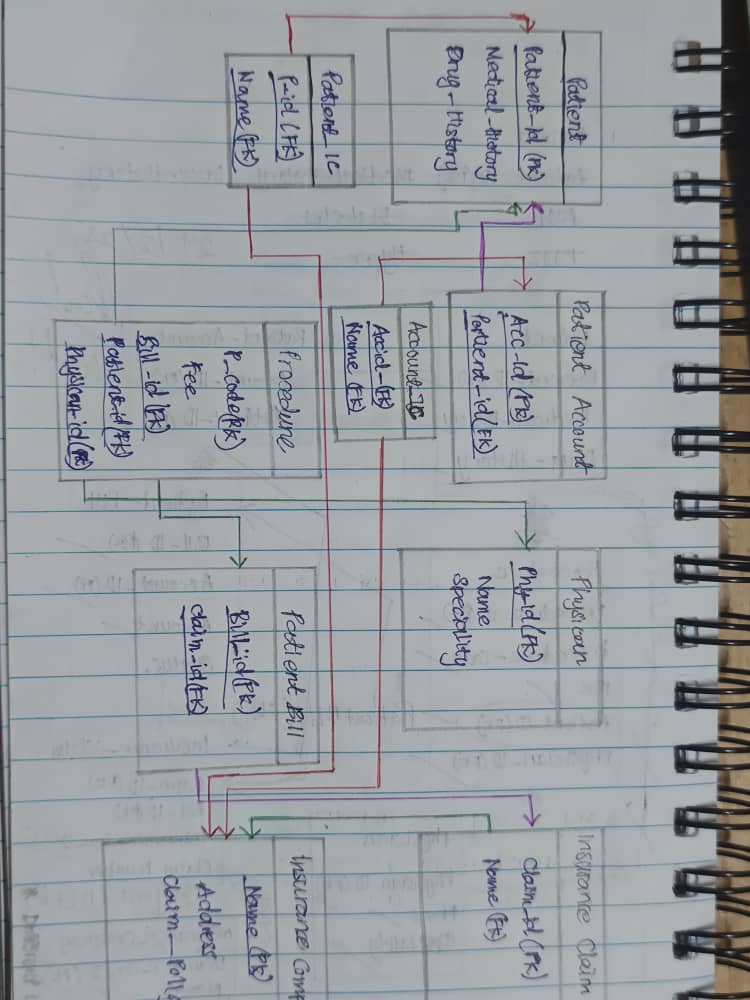 Patient
Patient-Id (PK)
Medical-History
Drug-History
Patient Account
Acc-Id (PK)
Patient-id (FK)
Physican
Phy-id (PK)
Name
Speciality
Insurance Claim
Claim-id (PK)
Name (FK)
Account-IC
Accid-(FK)
Name (FK)
Patient IC
P-id (FK)
Name (FK)
Procedune
P_code(PK)
Fee
Bill-id (FK)
Patient-id (FK)
Physican-id (FK)
Patient Bill
Bill-id (PK)
Claim-id (FK)
Insurance Comp
Name (PK)
Address
Claim_Poli